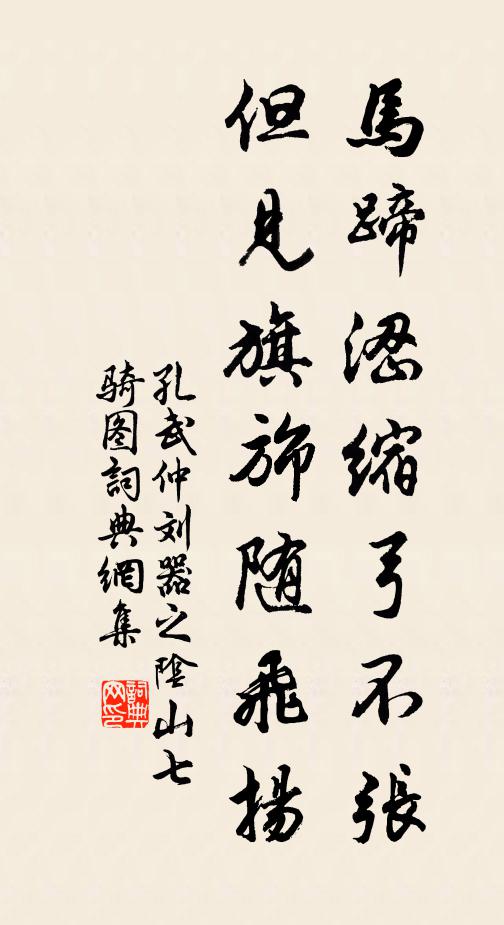 馬蹄涩縮弓不張
但見旗旆随飛揚
孔武仲刘器之陰山七
骑图詞典網集
詞典网印